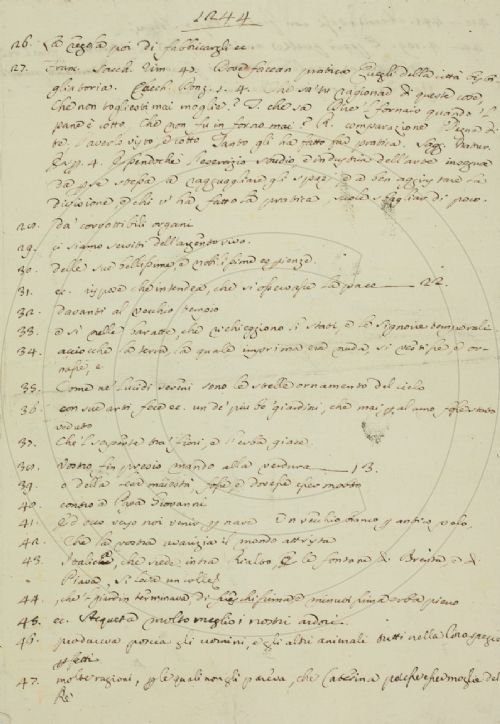 1244
26. La regola poi di fabbricargli ec.
27. Franc. Sacch. Rim. 43. Dove facean pratica Quegli della città
Cecch. 1. 4. Che sa' tu ragionar di queste cose,
Che non togliesti mai moglie? T. che sa quel fornaio quando 'l
pane è cotto Che non fu in forno mai? R. comparazione Degna di
te. L'averlo visto di cotto Tanto gli ha fatto far pratica. Sagg. natur.
esp. 4. Essendochè l'esercizio studio, e industria dell'arte insegna
da per se stessa a ragguagliare gli spazj, e a ben aggiustare la
divisione e chi v' ha fatto la pratica suole sbagliar di poco.
28. da' corrottibili organi
29. ci siamo serviti dell'argento vivo.
30. delle sue bellissime, e nobilissime
31. ec. rispose che intendea, che si osservasse la pace 22.
32. davanti al vecchio
33. e si nelle baratte, che veggiono i stati, e le signorie temporali
34. acciocchè la terra, la quale imprima era nuda, si vestisse e or-
nasse, e
35. Come ne' lucidi sereni sono le stelle ornamento del cielo
36. con sue arti fece ec. un de' più be' giardini, che mai per alcuno fosse stato
veduto
37. Che 'l serpente tra' fiori, e l'erba giace.
38. Vostro fin presio mando alla verdura 13.
39. o della
40. contro a Papa Giovanni
41. Ed ecco verso noi venir per nave Un vecchio bianco per antico pelo,
42. Che la vostra avarizia il mondo attrista
43. Italica, che siede intra Rialto, E le fontane di Brenta e di
Piava, Si leva un colle
44. che 'l giardin terminava, di freschissima e minutissima erba pieno
45. ec. Acqueta molto meglio i nostri ardori.
46. produceva poscia gli uomini, e gli altri animali tutti nella loro spezie
perfetti
47. molte ragioni, per le quali non gli pareva, che Caterina potesse esser moglie del
Re